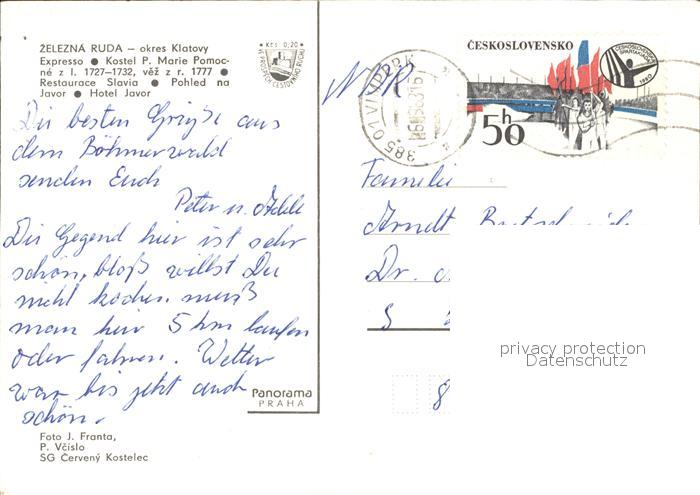 ŽELEZNÁ RUDA – okres Klatovy
Expresso ● Kostel P. Marie Pomoc-
né z l. 1727–1732, věž z r. 1777 ●
Restaurace Slavia ● Pohled na
Javor ● Hotel Javor
Kčs 0,20
VE PROSPĚCH CESTOVNÍHO RUCHU
Die besten Grüße aus
dem Böhmerwald
senden Euch
Peter u.
Die Gegend hier ist sehr
schön, bloß willst Du
nicht kochen muß
man hier 5 km laufen
oder fahren. Wetter
war bis jetzt auch
schön.
Panorama
PRAHA
Foto J. Franta,
P. Včíslo
SG Červený Kostelec
385 01 VIMPERK
ČESKOSLOVENSKO
ČESKOSLOVENSKÁ SPARTAKIÁDA 1980
50 h
Familie
Arndt
Dr.
8
privacy protection
Datenschutz